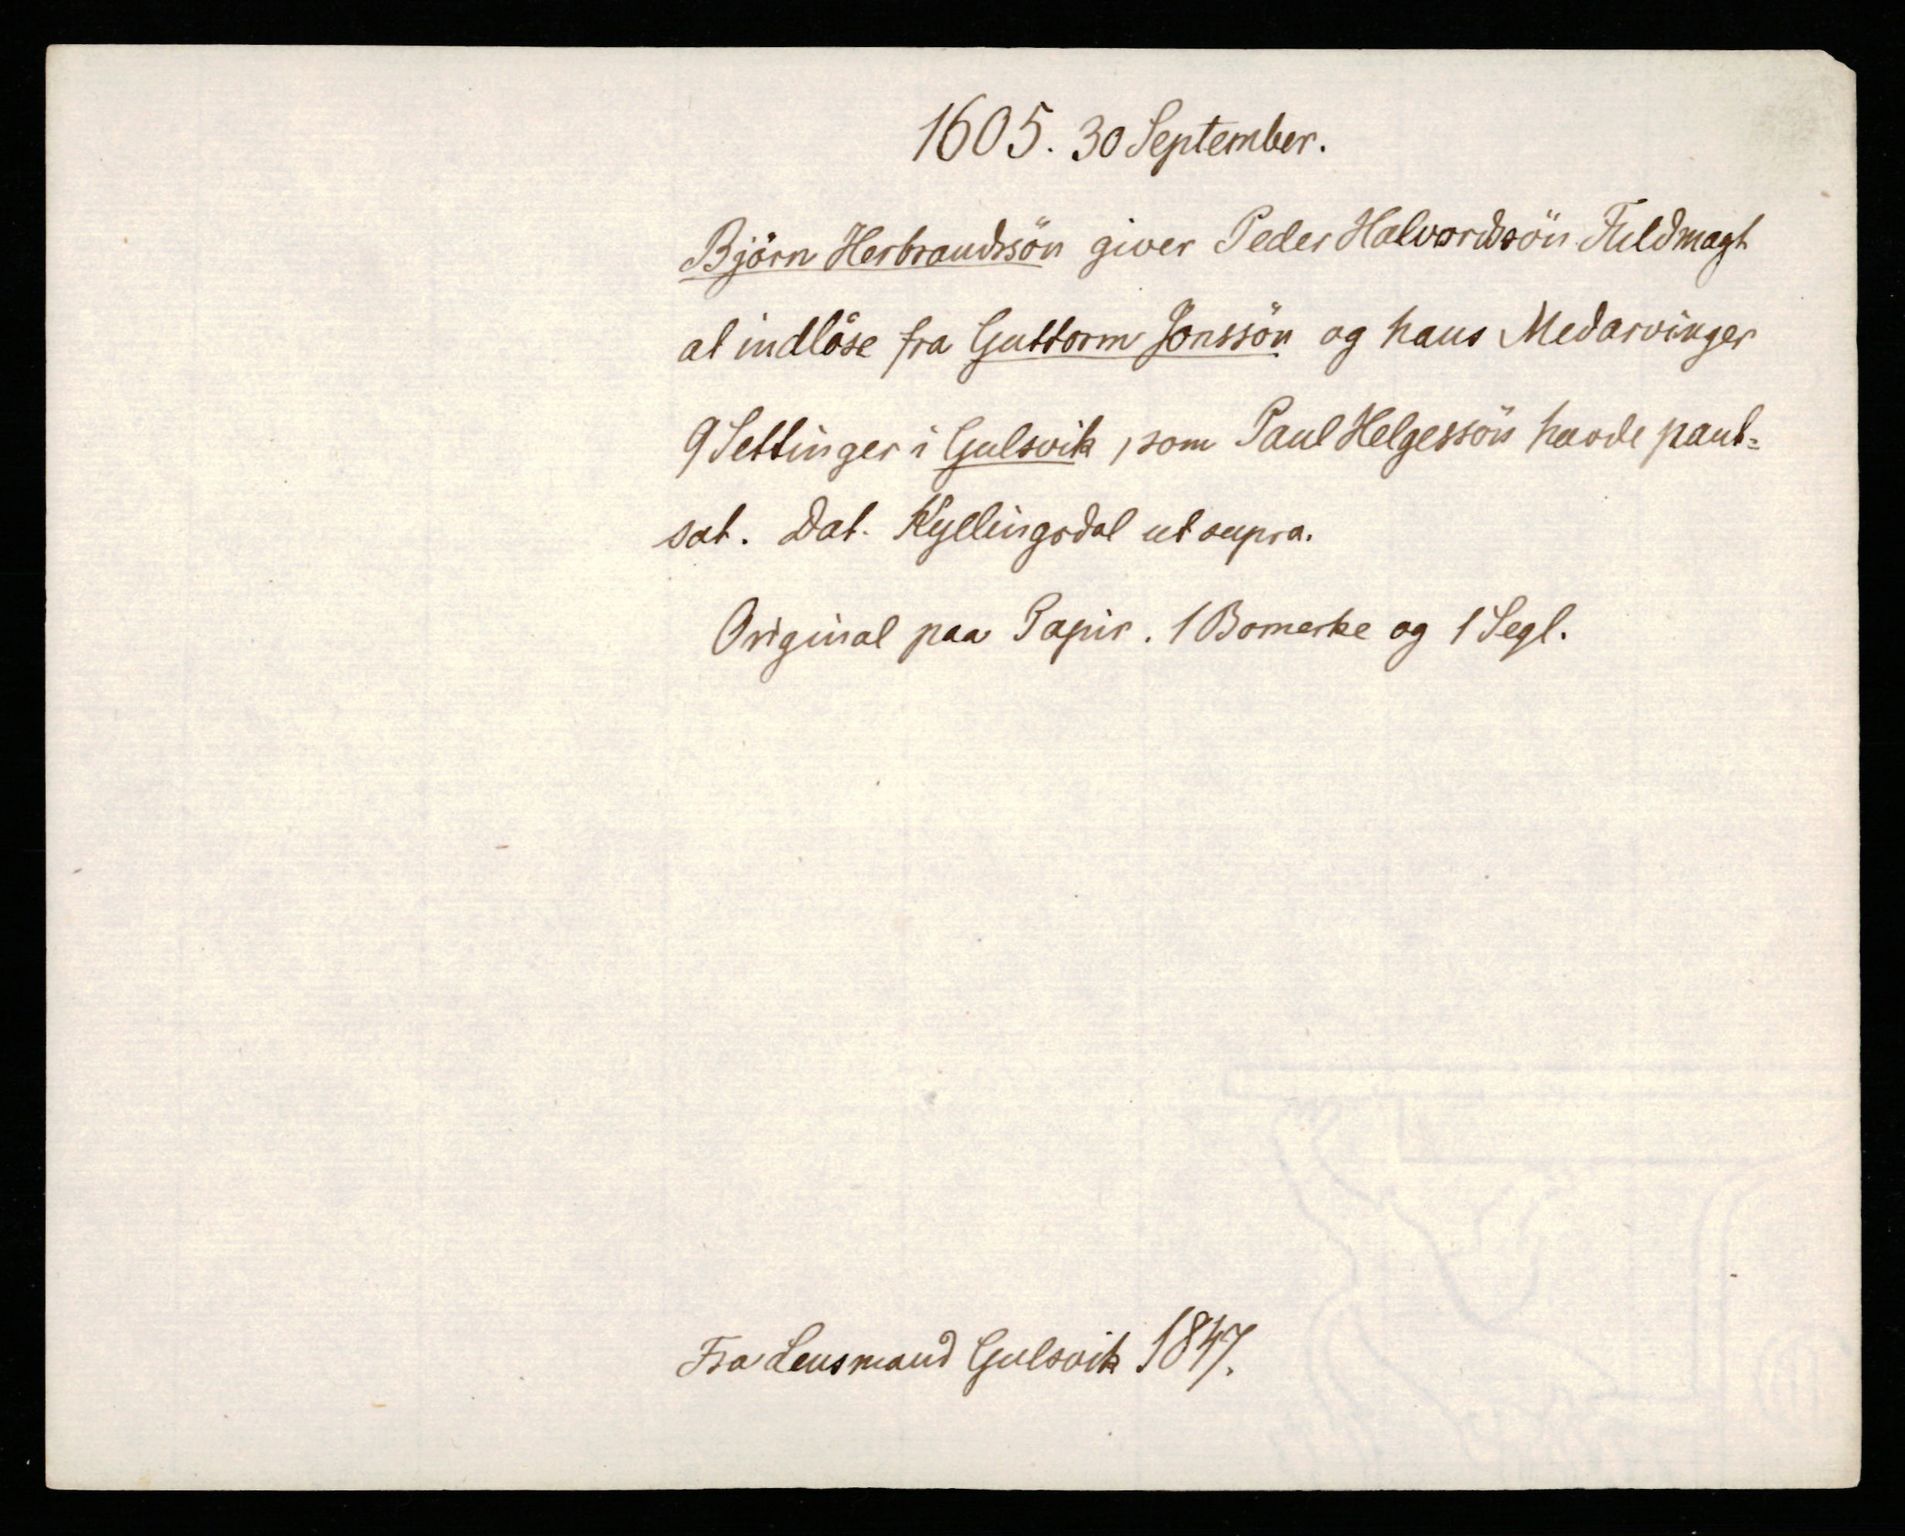 1605. 30 September.
Björn Herbrandssön giver Peder Halvordssön Fuldmagt
at indlöse fra Guttorm Jonssön og hans Medarvinger
9 Settinger i Gulsvik, som Paul Helgessön havde pant-
sat. Dat. Kyllingsdal ut supra.
Original paa Papir. 1 Bomerke og 1 Segl.
Fra Lensmand Gulsvik 1847.